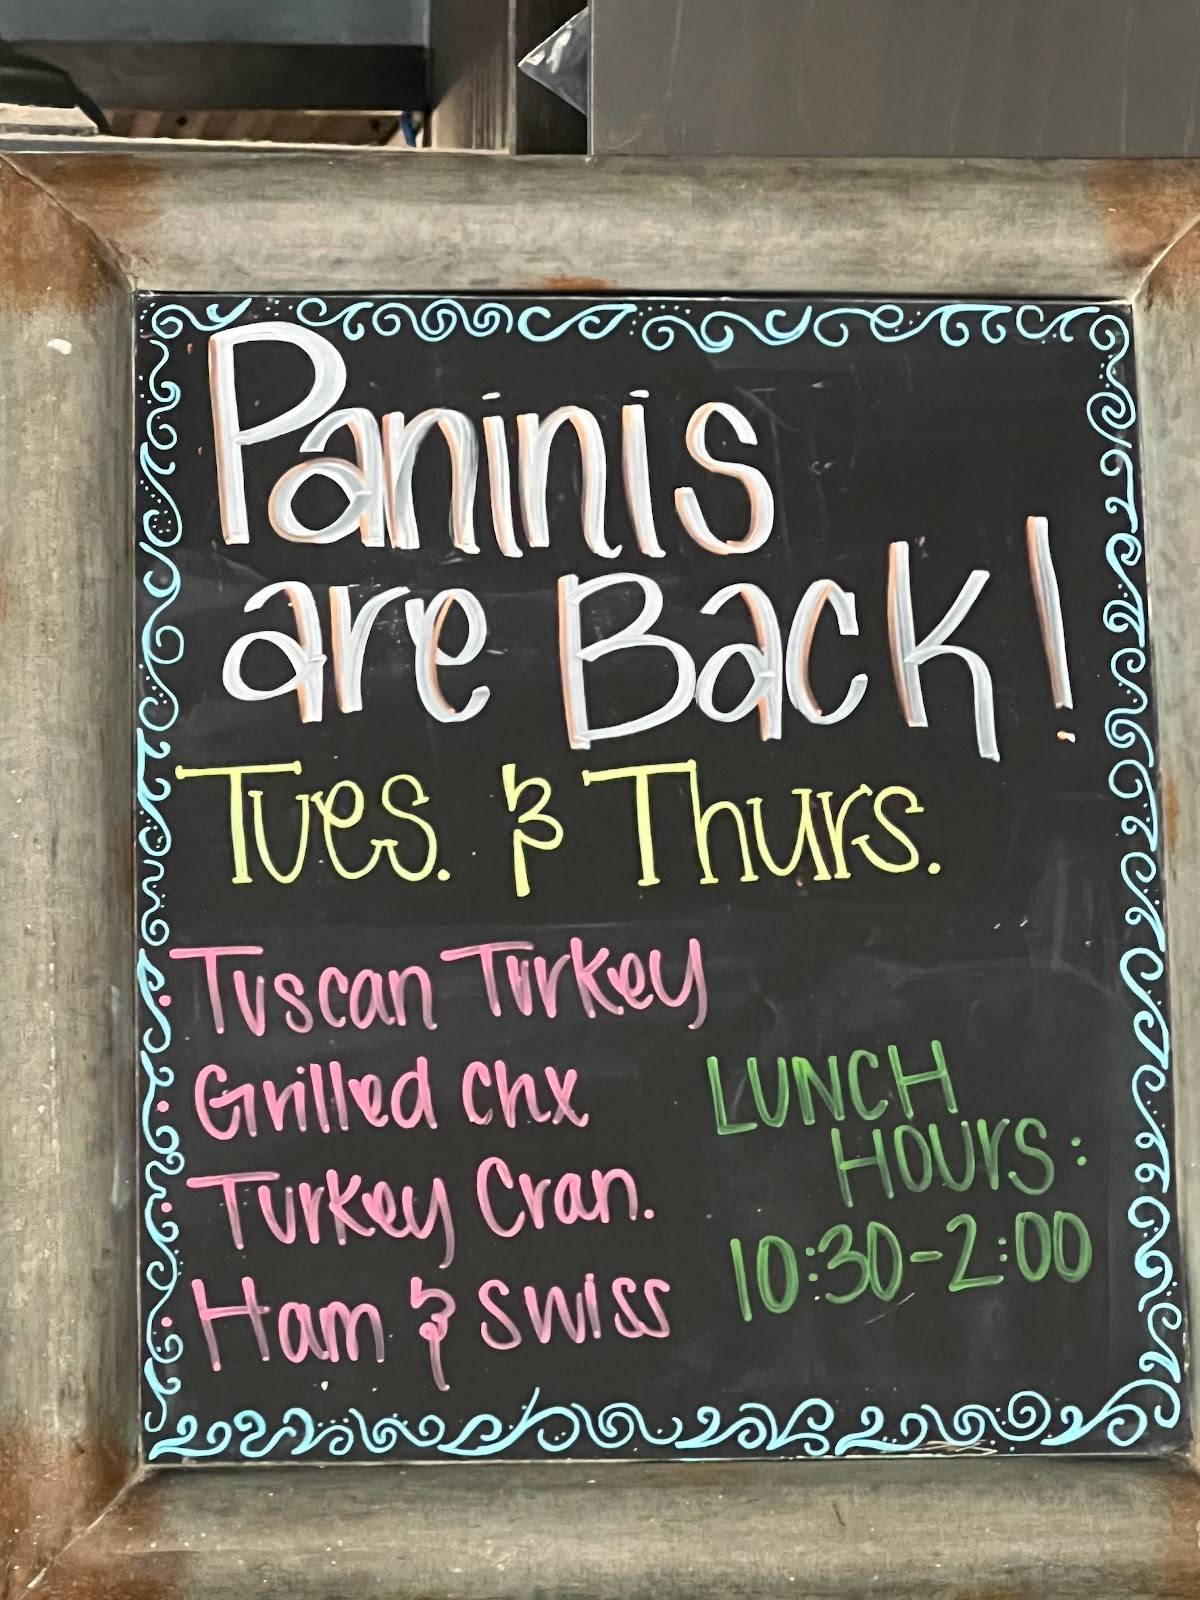 Paninis
are Back!
Tues. & Thurs.
Tuscan Turkey
Grilled Chx
Turkey Cran.
Ham & Swiss
LUNCH
HOURS:
10:30-2:00